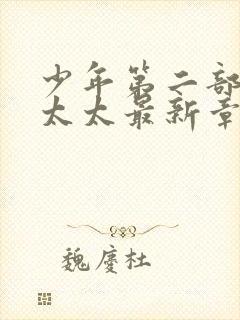 少年第二部
太太最新章
魏廖杜